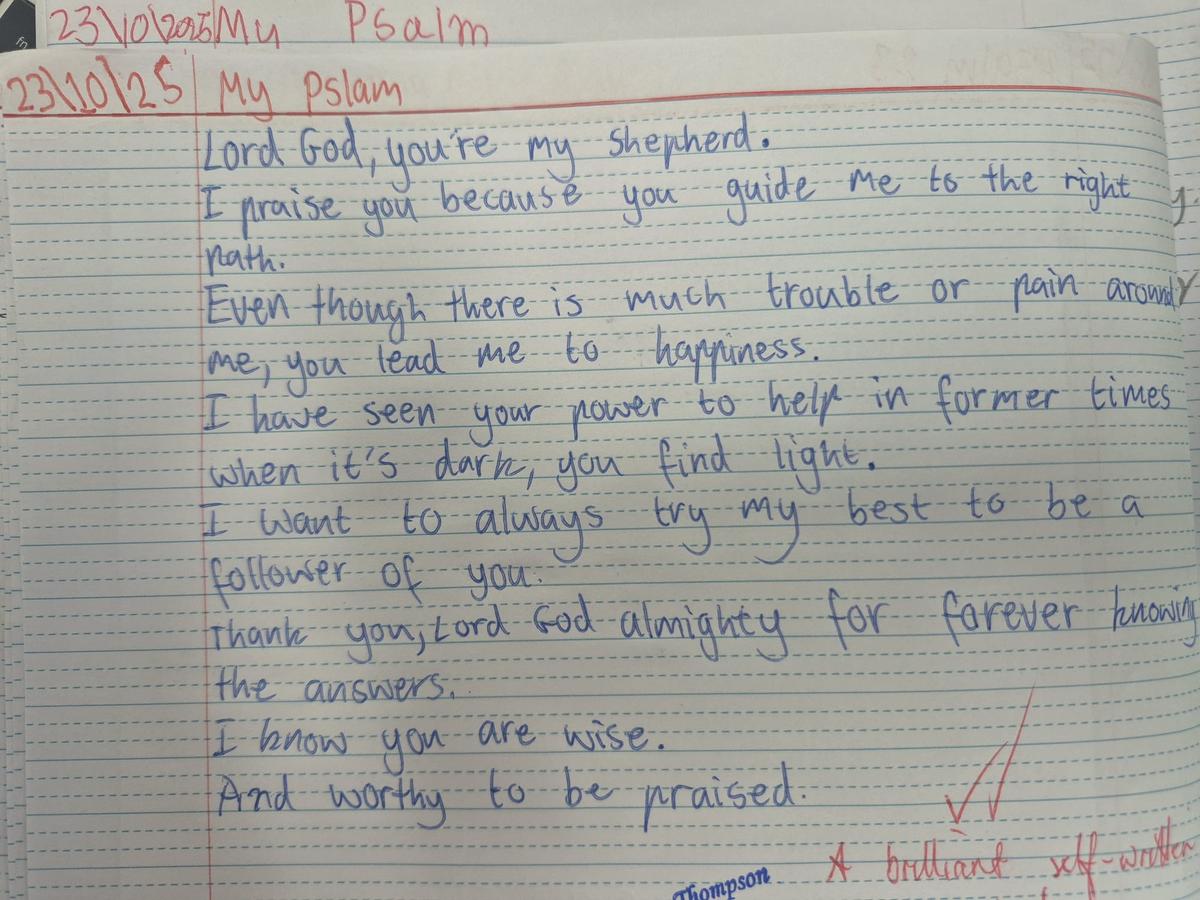 23\10\2025 My Psalm
23\10\25 My Pslam
Lord God, you're my shepherd.
I praise you because you guide me to the right
path.
Even though there is much trouble or pain around
me, you lead me to happiness.
I have seen your power to help in former times
when it's dark, you find light.
I want to always try my best to be a
follower of you.
Thank you, Lord God almighty for forever knowing
the answers.
I know you are wise.
And worthy to be praised.
A brilliant self-written
Thompson